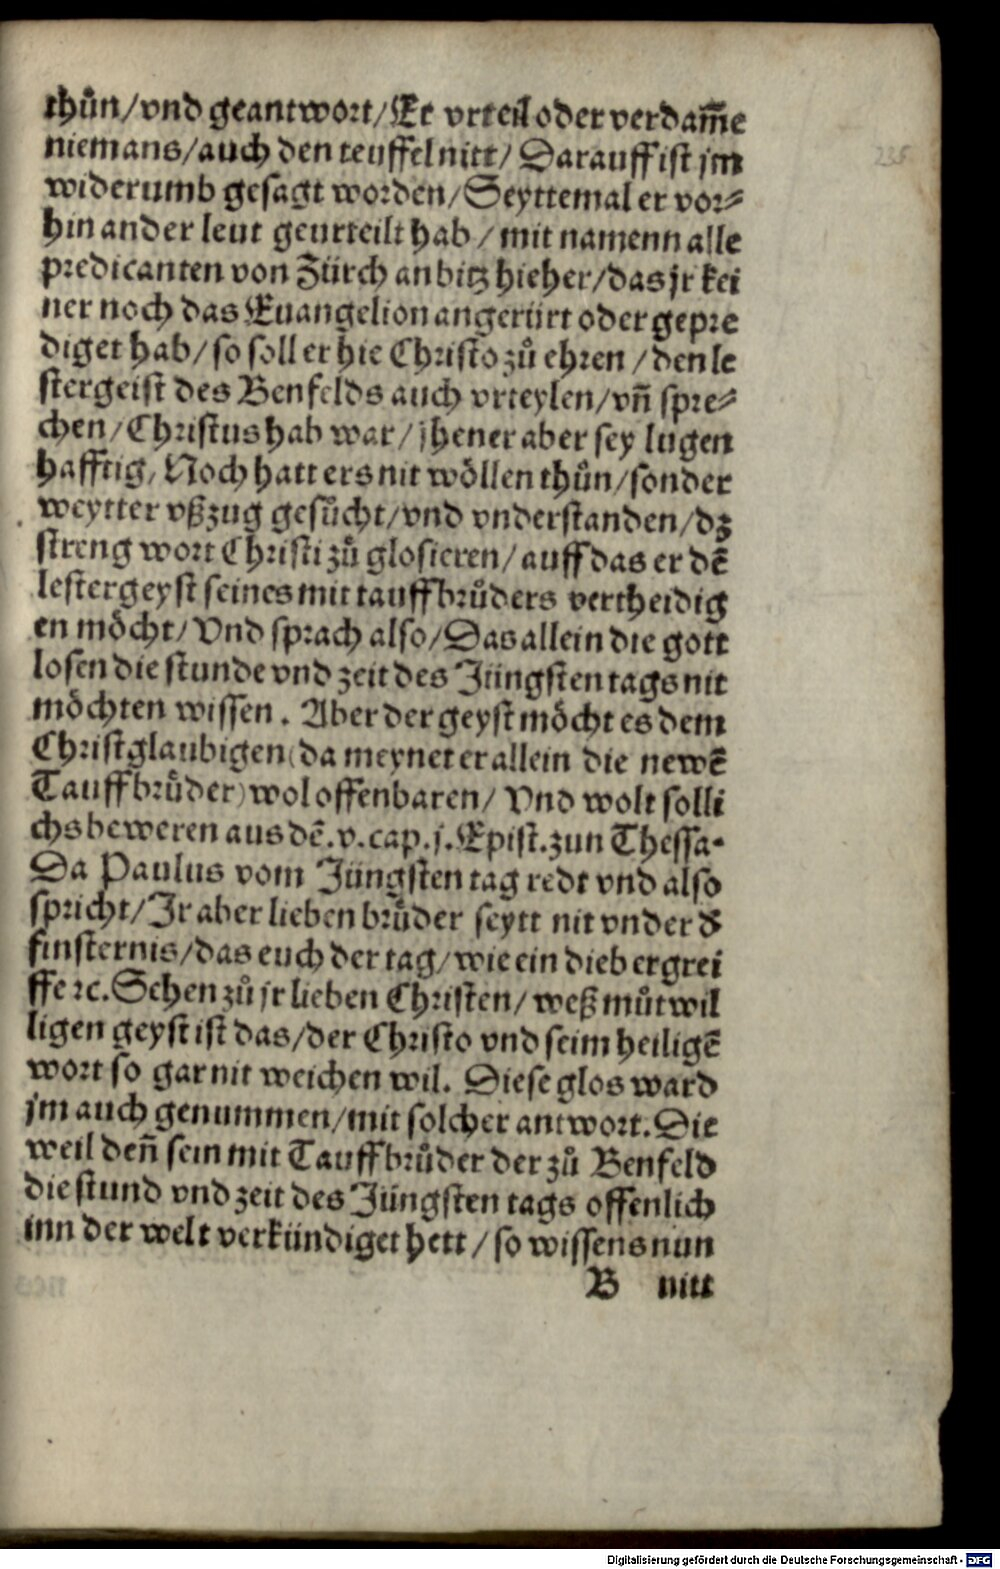 thůn/vnd geantwort/Er vrteil oder verdam̃e
niemans/auch den teuffel nitt/ Darauff ist jm
widerumb gesagt worden/Seyttemal er vor⸗
hin ander leut geurteilt hab/mit namenn alle
predicanten von Zürch an bitz hieher/das jr kei
ner noch das Euangelion angerürt oder gepre
diget hab/so soll er hie Christo zů ehren/den le
stergeist des Benfelds auch vrteylen/vñ spre⸗
chen/Christus hab war/jhener aber sey lugen
hafftig/Noch hatt ers nit wöllen thůn/sonder
weytter vßzug gesůcht/vnd vnderstanden/dz
streng wort Christi zů glosieren/auff das er dẽ
lestergeyst seines mit tauffbrůders vertheidig
en möcht/Vnd sprach also/Das allein die gott
losen die stunde vnd zeit des Jüngsten tags nit
möchten wissen. Aber der geyst möcht es dem
Christglaubigen(da meynet er allein die newẽ
Tauffbrüder)wol offenbaren/Vnd wolt solli
chs beweren aus dẽ.v.cap.j.Epist.zun Thessa.
Da Paulus vom Jüngsten tag redt vnd also
spricht/Jr aber lieben brüder seytt nit vnder d̕
finsternis/das euch der tag/wie ein dieb ergrei
ffe ꝛc.Sehen zů jr lieben Christen/weß můtwil
ligen geyst ist das/der Christo vnd seim heiligẽ
wort so gar nit weichen wil. Diese glos ward
jm auch genummen/mit solcher antwort.Die
weil deñ sein mit Tauffbrůder der zů Benfeld
die stund vnd zeit des Jüngsten tags offenlich
inn der welt verkündiget hett/so wissens nun
B nitt
235
Digitalisierung gefördert durch die Deutsche Forschungsgemeinschaft - DFG